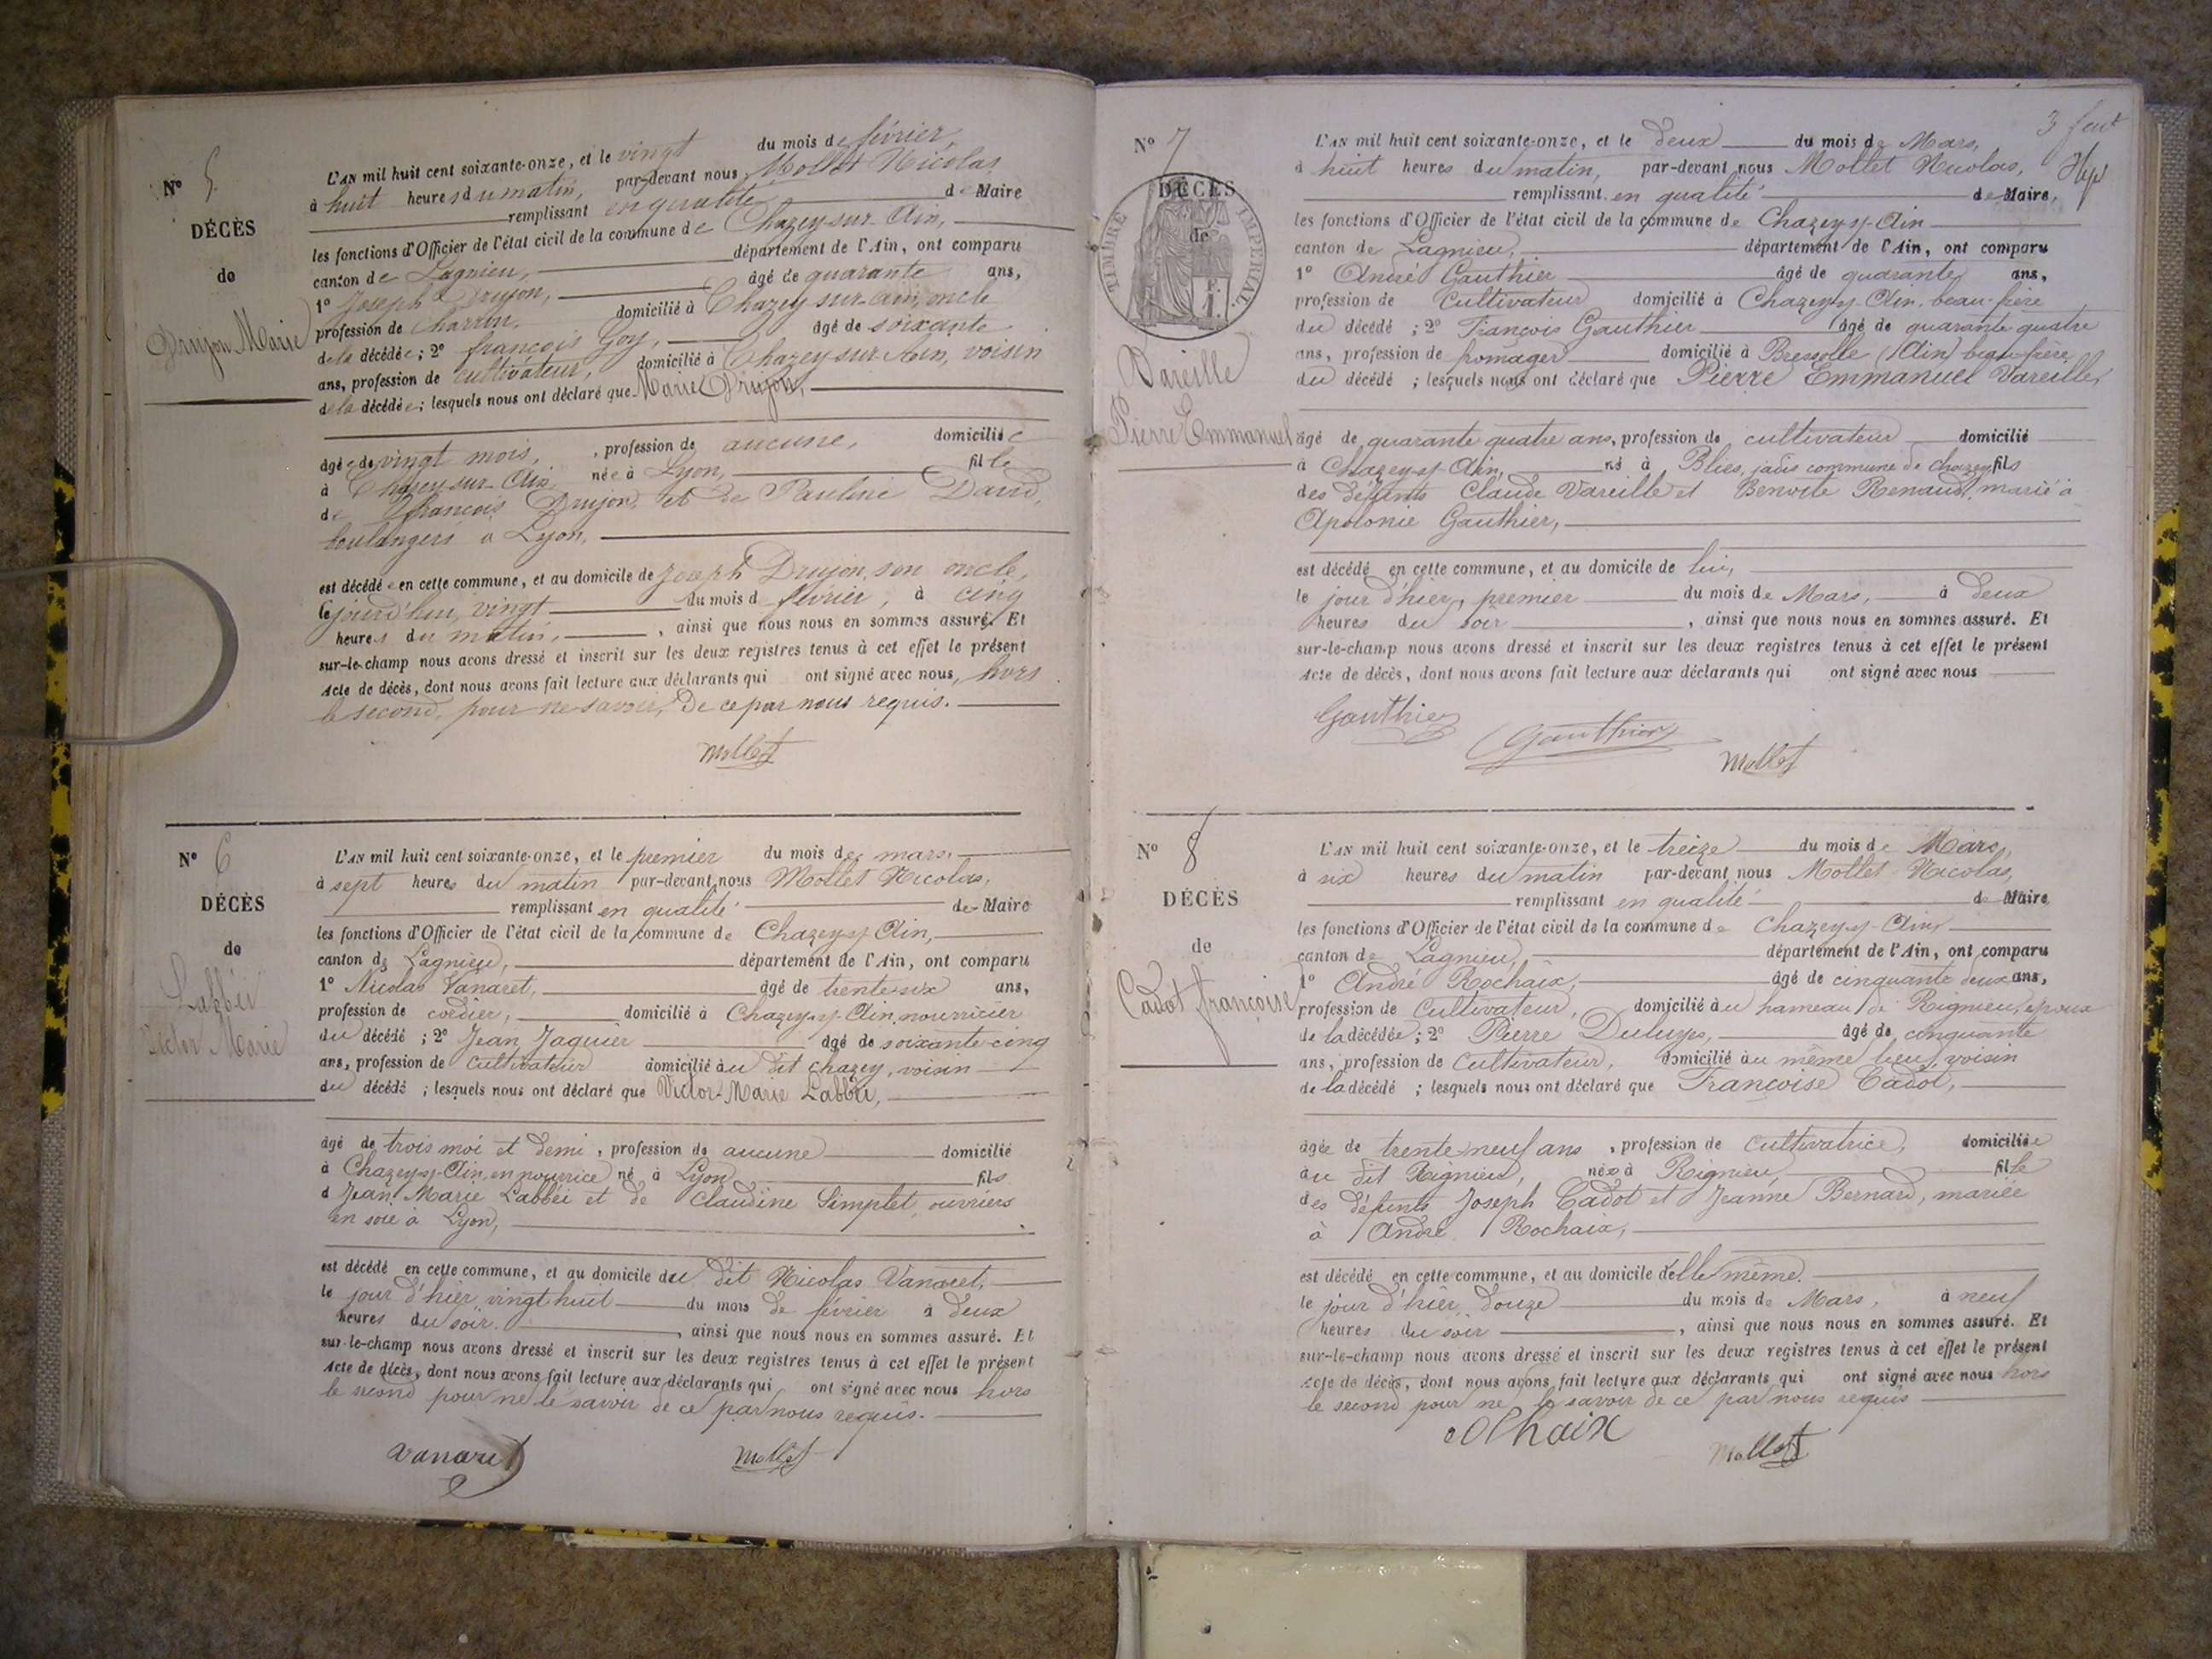 N° 5
DÉCÈS
de
Drujon Marie
L'AN mil huit cent soixante-onze, et le vingt du mois de février,
à huit heures du matin, par-devant nous Mollet Nicolas
remplissant en qualité de Maire
les fonctions d'Officier de l'état civil de la commune de Chazey-sur-Ain,
canton de Lagnieu, département de l'Ain, ont comparu
1° Joseph Drujon, âgé de quarante ans,
profession de charron, domicilié à Chazey-sur-Ain, oncle
de la décédée; 2° françois Goy, âgé de soixante
ans, profession de cultivateur, domicilié à Chazey-sur-Ain, voisin
de la décédée; lesquels nous ont déclaré que Marie Drujon,
âgée de vingt mois, , profession de aucune, domiciliée
à Chazey-sur-Ain, née à Lyon, fille
de françois Drujon, et de Pauline David,
boulangers à Lyon,
est décédée en cette commune, et au domicile de Joseph Drujon, son oncle,
le jourd'hui, vingt du mois d février, à cinq
heures du matin, , ainsi que nous nous en sommes assuré. Et
sur-le-champ nous avons dressé et inscrit sur les deux registres tenus à cet effet le présent
Acte de décès, dont nous avons fait lecture aux déclarants qui ont signé avec nous, hors
le second, pour ne savoir, de ce par nous requis.
Mollet
N° 6
DÉCÈS
de
Labbéi
Victor Marie
L'AN mil huit cent soixante-onze, et le premier du mois de mars,
à sept heures du matin par-devant nous Mollet Nicolas,
remplissant en qualité de Maire
les fonctions d'Officier de l'état civil de la commune de Chazey-s/-Ain,
canton de Lagnieu, département de l'Ain, ont comparu
1° Nicolas Vanaret, âgé de trente-six ans,
profession de cordier, domicilié à Chazey-s/-Ain, nourricier
du décédé ; 2° Jean Jaquier âgé de soixante-cinq
ans, profession de cultivateur domicilié au dit Chazey, voisin
du décédé ; lesquels nous ont déclaré que Victor-Marie Labbéi,
âgé de trois moi et demi , profession de aucune domicilié
à Chazey-s/-Ain, en nourrice né à Lyon fils
d Jean Marie Labbéi et de Claudine Simplet, ouvriers
en soie à Lyon,
est décédé en cette commune, et au domicile du dit Nicolas Vanaret,
le jour d'hier, vingt huit du mois de février à deux
heures du soir. , ainsi que nous nous en sommes assuré. Et
sur-le-champ nous avons dressé et inscrit sur les deux registres tenus à cet effet le présent
Acte de décès, dont nous avons fait lecture aux déclarants qui ont signé avec nous hors
le second pour ne le savoir de ce par nous requis.
Vanaret Mollet
3 feut
N° 7
DÉCÈS
de
TIMBRE IMPÉRIAL
Vareille
Pierre Emmanuel
L'AN mil huit cent soixante-onze, et le deux du mois de Mars,
à huit heures du matin, par-devant nous Mollet Nicolas,
remplissant en qualité de Maire,
les fonctions d'Officier de l'état civil de la commune de Chazey-s/-Ain
canton de Lagnieu, département de l'Ain, ont comparu
1° André Gauthier âgé de quarante ans,
profession de Cultivateur domicilié à Chazey-s/-Ain, beau-frère
du décédé ; 2° François Gauthier âgé de quarante quatre
ans, profession de fromager domicilié à Bressolle (Ain) beau frère
du décédé ; lesquels nous ont déclaré que Pierre Emmanuel Vareille,
âgé de quarante quatre ans, profession de cultivateur domicilié
à Chazey-s/-Ain, né à Blies, jadis commune de chazey, fils
des défunts Claude Vareille et Benoite Renaud, marié à
Apolonie Gauthier,
est décédé en cette commune, et au domicile de lui,
le jour d'hier, premier du mois de Mars, à deux
heures du soir , ainsi que nous nous en sommes assuré. Et
sur-le-champ nous avons dressé et inscrit sur les deux registres tenus à cet effet le présent
Acte de décès, dont nous avons fait lecture aux déclarants qui ont signé avec nous
Gauthier Gauthier Mollet
N° 8
DÉCÈS
de
Cadot françoise
L'AN mil huit cent soixante-onze, et le treize du mois de Mars,
à six heures du matin par-devant nous Mollet Nicolas,
remplissant en qualité de Maire
les fonctions d'Officier de l'état civil de la commune de Chazey-s/-Ain
canton de Lagnieu, département de l'Ain, ont comparu
1° André Rochaix, âgé de cinquante deux ans,
profession de Cultivateur, domicilié au hameau de Rignieu, époux
de la décédée; 2° Pierre Duluys, âgé de cinquante
ans, profession de Cultivateur, domicilié au même lieu, voisin
de la décédé ; lesquels nous ont déclaré que Françoise Cadot,
âgée de trente neuf ans , profession de cultivatrice, domiciliée
au dit Rignieu, née à Rignieu, fille
des défunts Joseph Cadot et Jeanne Bernard, mariée
à André Rochaix,
est décédé en cette commune, et au domicile d'elle même.
le jour d'hier, douze du mois de Mars, à neuf
heures du soir , ainsi que nous nous en sommes assuré. Et
sur-le-champ nous avons dressé et inscrit sur les deux registres tenus à cet effet le présent
Acte de décès, dont nous avons fait lecture aux déclarants qui ont signé avec nous hors
le second pour ne le savoir de ce par nous requis
Mollet